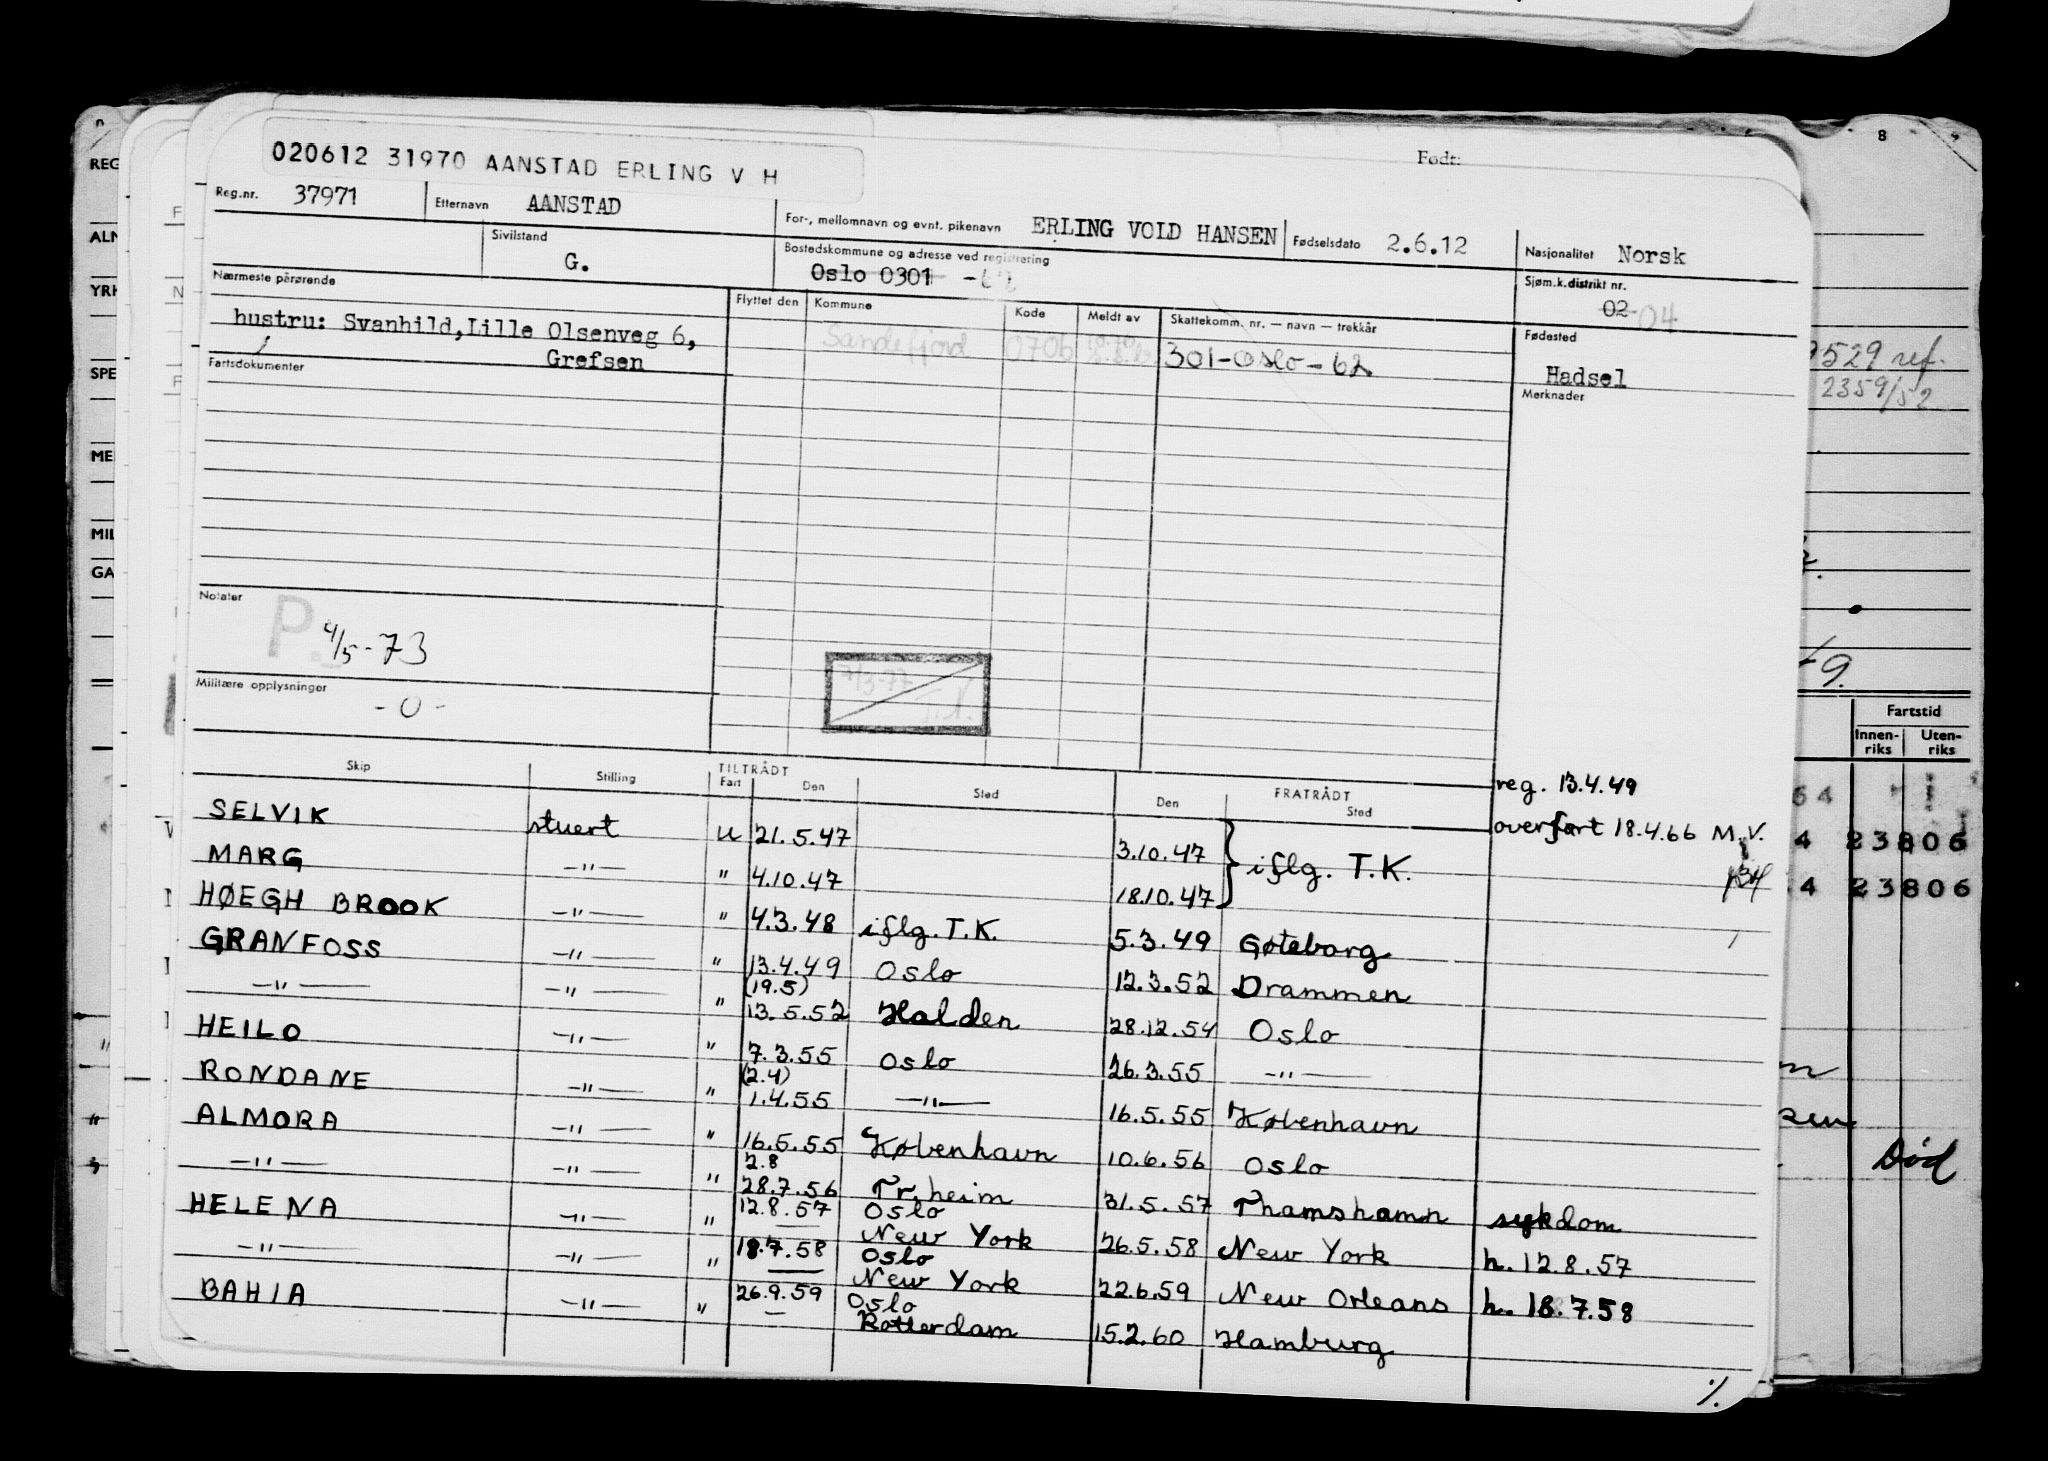 Født:
020612 31970 AANSTAD ERLING V H
Reg.nr. 37971 Etternavn AANSTAD For-, mellomnavn og evnt. pikenavn ERLING VOLD HANSEN Fødselsdato 2.6.12 Nasjonalitet Norsk
Sivilstand G. Bostedskommune og adresse ved registrering Oslo 0301 Sjøm.k.distrikt nr. 02 04
Nærmeste pårørende Flyttet den Kommune Kode Meldt av Skattekomm. nr. — navn — trekkår Fødested
hustru: Svanhild,Lille Olsenveg 6, Sandefjord 0706 301-Oslo-62 Hadsel
Grefsen
Fartsdokumenter Merknader
Notater
P. 4/5-73
Militære opplysninger -0-
7/3-77
TILTRÅDT FRATRÅDT
Skip Stilling Fart Den Sted Den Sted
reg. 13.4.49
overført 18.4.66 M.V.
SELVIK stuert u 21.5.47 3.10.47 } iflg. T.K.
MARG —"— " 4.10.47 18.10.47
HØEGH BROOK —"— " 4.3.48 iflg. T.K. 5.3.49 Gøteborg
GRANFOSS —"— " 13.4.49 Oslo 12.3.52 Drammen
—"— —"— " (19.5) 13.5.52 Halden 28.12.54 Oslo
HEILO —"— " 7.3.55 Oslo 26.3.55 —"—
RONDANE —"— " (2.4) 1.4.55 —"— 16.5.55 København
ALMORA —"— " 16.5.55 København 10.6.56 Oslo
—"— —"— " 2.8 28.7.56 Tr.heim 31.5.57 Thamshamn sykdom
HELENA —"— " 12.8.57 Oslo New York 26.5.58 New York h. 12.8.57
—"— —"— " 18.7.58 Oslo New York 22.6.59 New Orleans h. 18.7.58
BAHIA —"— " 26.9.59 Oslo Rotterdam 15.2.60 Hamburg
%
REG
ALM
YRK
SPE
MEL
MIL
GA
8
9529 ref.
2359/52
Fartstid
Innen-riks Uten-riks
64
4 23806
4 23806
Død